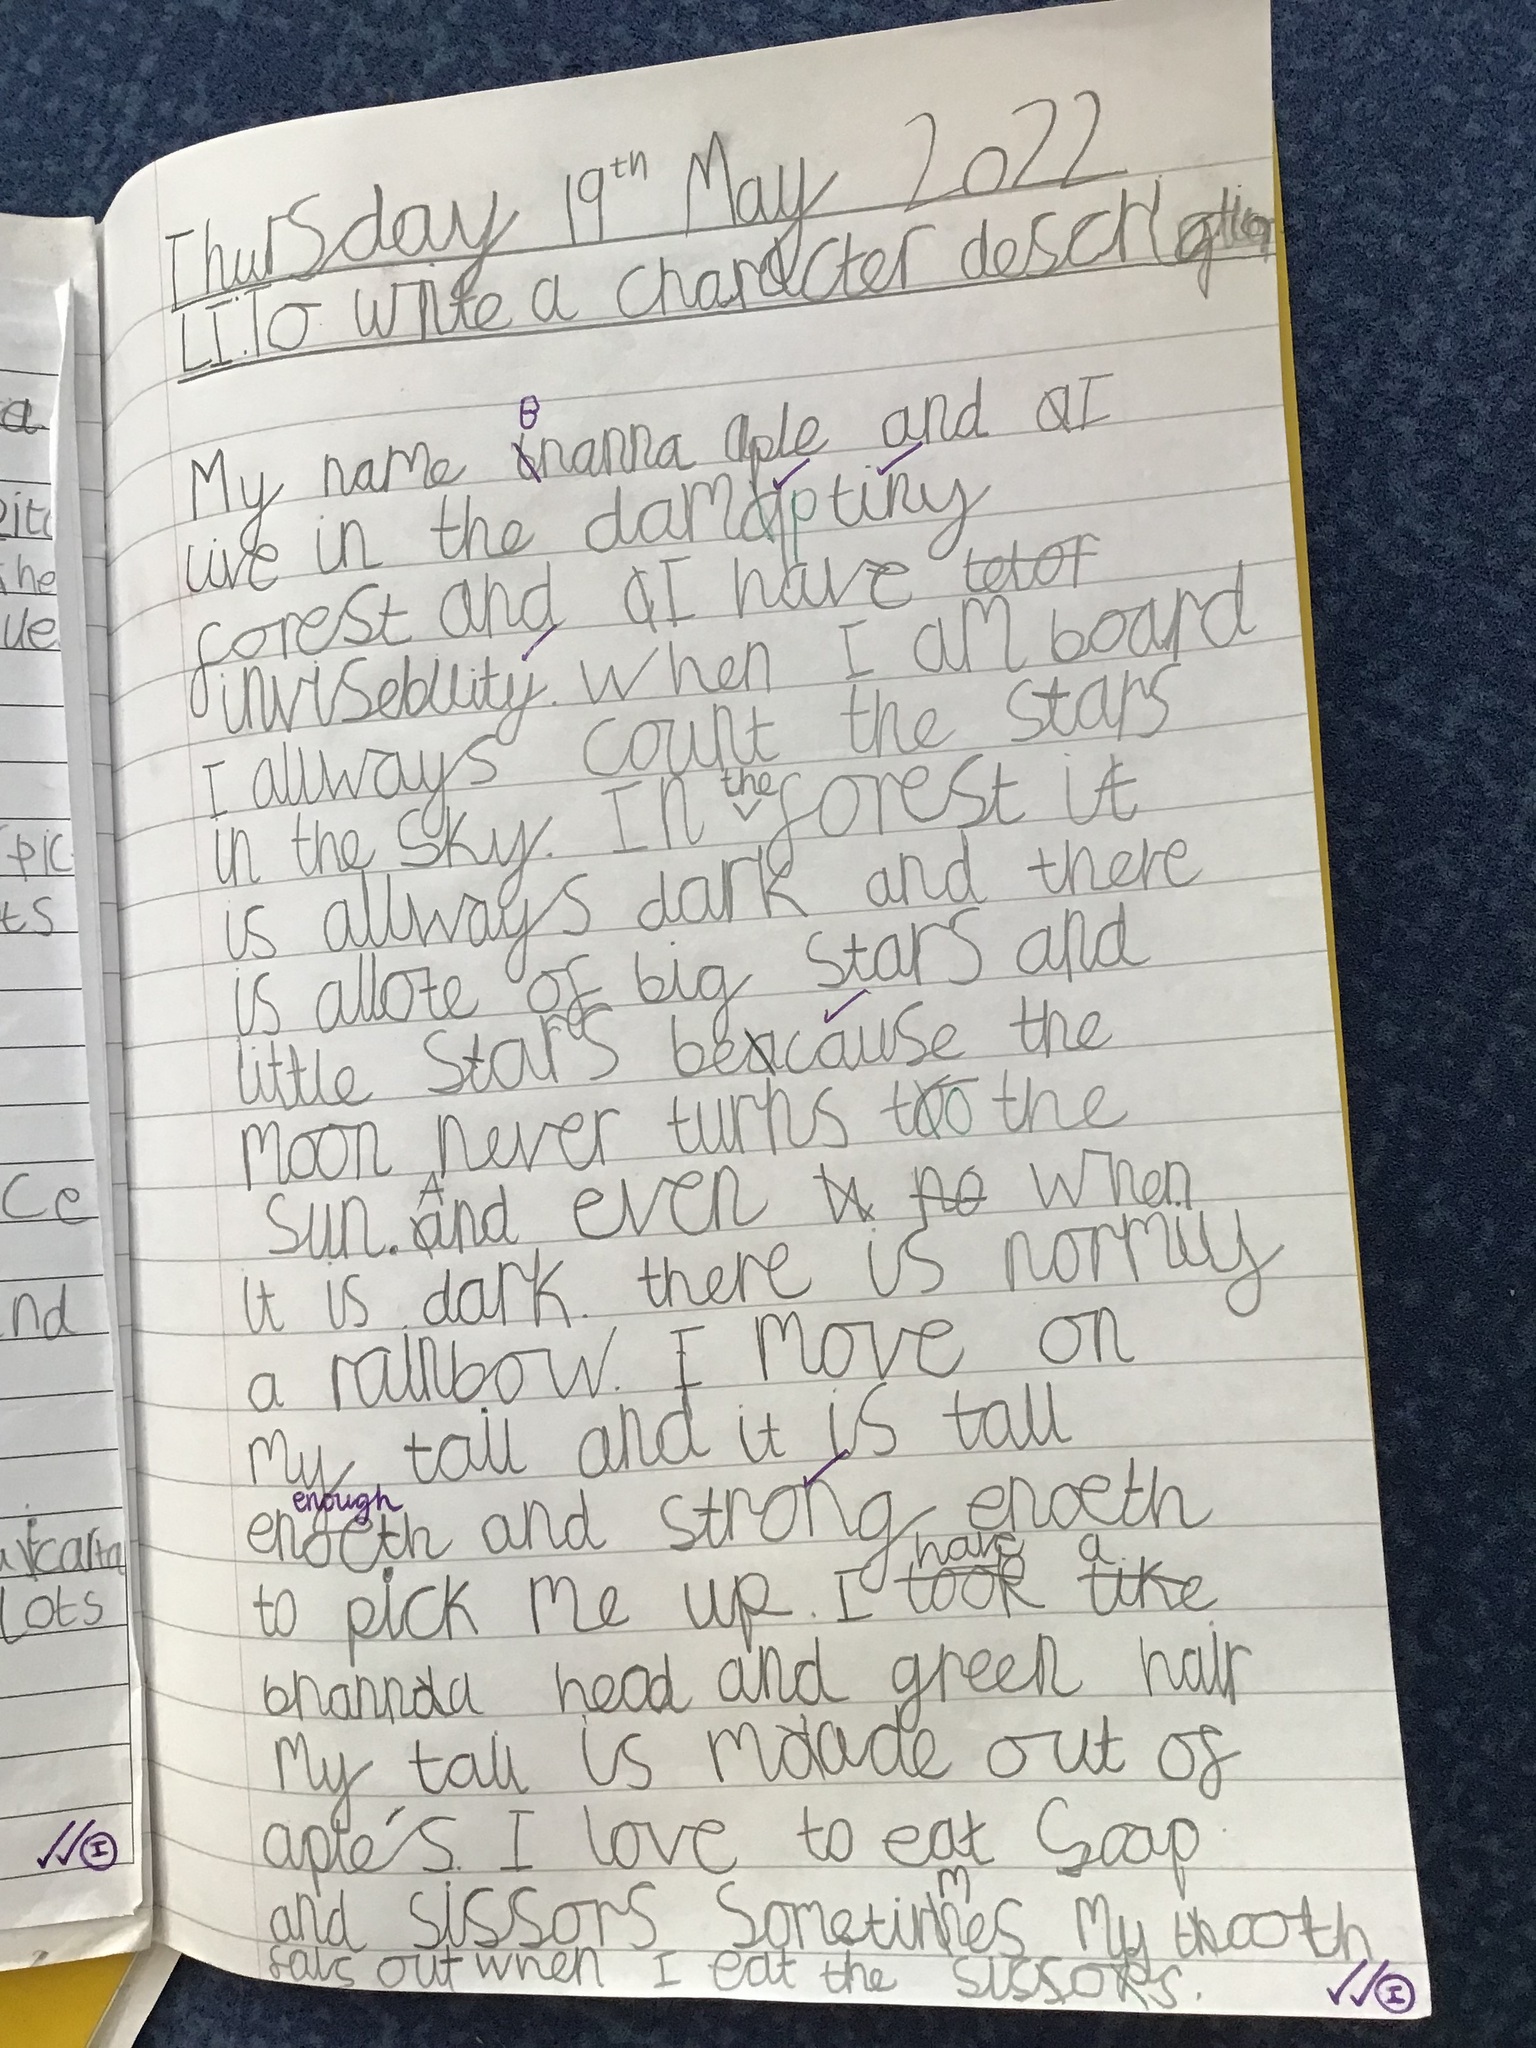 a
the
ue
pic
ts
ce
and
lots
I
Thursday 19th May 2022
LI.To write a character description
B
My name nanna aple and I
live in the damp tiny
forest and I have
inviseblity. When I am board
I allways count the stars
in the sky. In the forest it
is allways dark and there
is allote of big stars and
little stars because the
moon never turns to the
sun. And even when
it is dark. there is normily
a rainbow. I move on
my tail and it is tall
enough
enoeth and strong enoeth
have a
to pick me up. I took like
bnannaa head and green hair
My tail is made out of
aple's. I love to eat Soap
m
and sissors Sometimes My tooth
fals out when I eat the sissors.
I